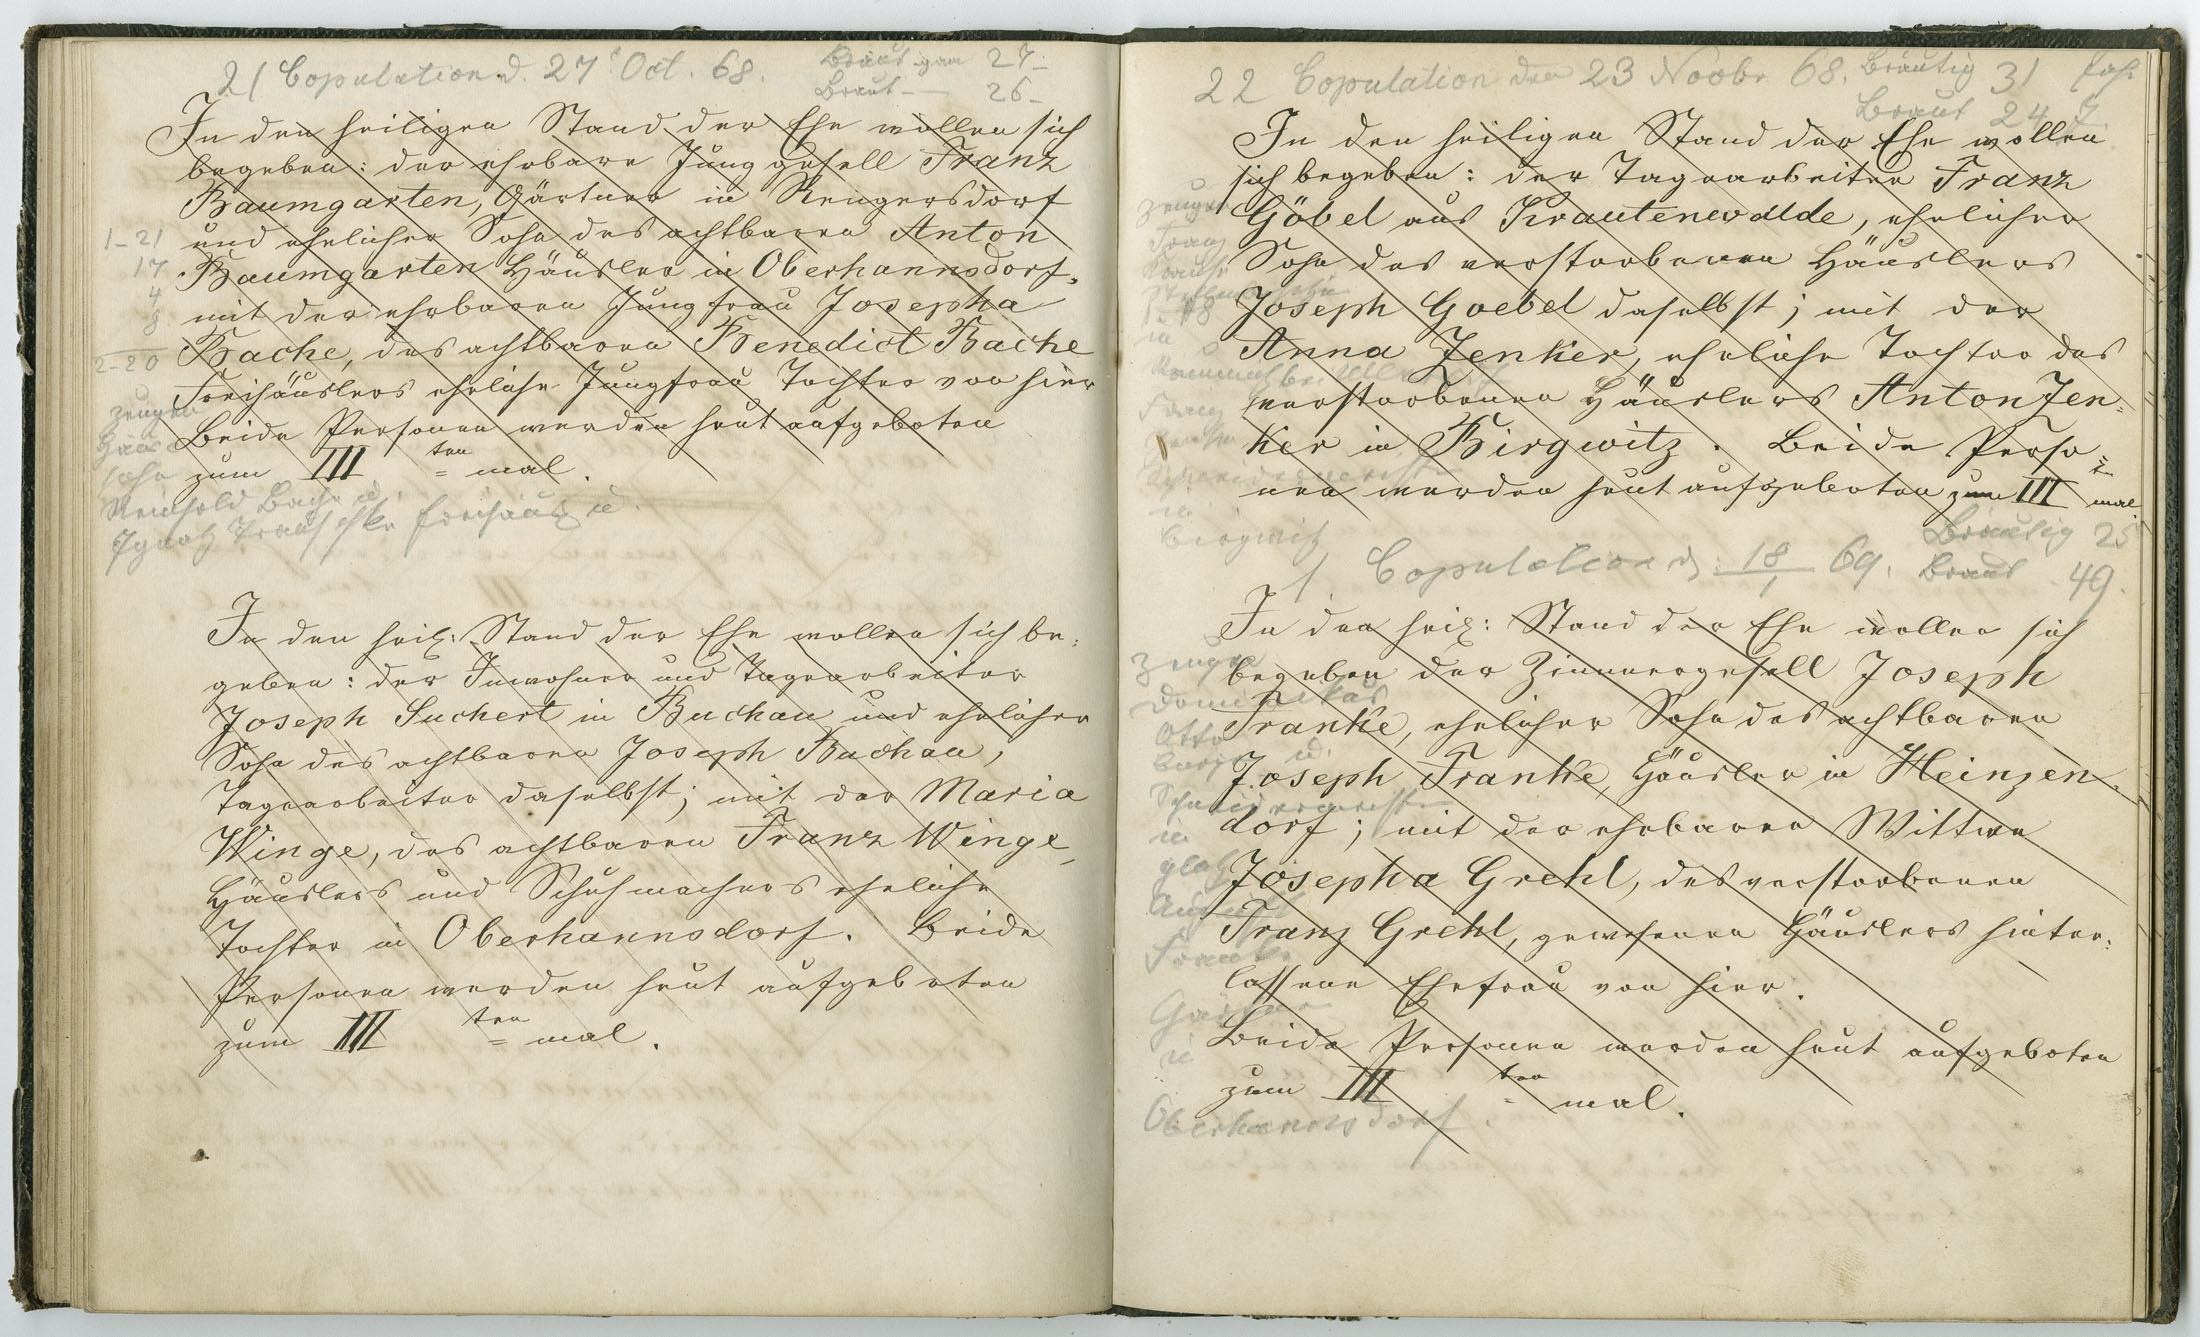 21 Copulation d. 27t Oct. 68. Bräutigam 27-
Braut - 26-
In den heiligen Stand der Ehe wollen sich
begeben: der ehrbare Junggesell Franz
Baumgarten, Gärtner in Rengersdorf
und ehelicher Sohn des achtbaren Anton
Baumgarten Häusler in Oberhannsdorf,
mit der ehrbaren Jungfrau Josepha
Bache, des achtbaren Benedict Bache
Freihäuslers eheliche Jungfrau Tochter von hier
Beide Personen werden heut aufgeboten
zum III ten = mal.
1-21
17
4
8
2-20
Zeugen
Häus
sohn
Reinhold Bache u
Ignatz Franschke Freihäus u.
In den heil: Stand der Ehe wollen sich be:
geben: der Inwohner und Tagearbeiter
Joseph Suchert in Buchau und ehelicher
Sohn des achtbaren Joseph Buchau,
Tagearbeiter daselbst; mit der Maria
Winge, des achtbaren Franz Winge,
Häuslers und Schuhmachers eheliche
Tochter in Oberhannsdorf. Beide
Personen werden heut aufgeboten
zum III ten = mal.
22 Copulation den 23 Novbr 68. Bräutig 31 Jahr
Braut 24 J.
In den heiligen Stand der Ehe wollen
sich begeben: der Tagearbeiter Franz
Göbel aus Krautenwalde, ehelicher
Sohn des verstorbenen Häuslers
Joseph Goebel daselbst; mit der
Anna Zenker, eheliche Tochter des
verstorbenen Häuslers Anton Zen=
ker in Birgwitz. Beide Perso=
nen werden heut aufgeboten zum III mal.
Zeugen
Franz
in
Franz
in
Birgwitz
1. Copulation d. 18/1 69. Bräutig 25
Braut - 49.
In den heil: Stand der Ehe wollen sich
begeben der Zimmergesell Joseph
Franke, ehelicher Sohn des achtbaren
Joseph Franke, Häusler in Heinzen=
dorf; mit der ehrbaren Wittwe
Josepha Grehl, des verstorbenen
Franz Grehl, gewesenen Häuslers hinter:
lassene Ehefrau von hier.
Beide Personen werden heut aufgeboten
zum III ten = mal.
Zeugen
Otto
in
Glatz
August
Franke
Gärtner
in
Oberhannsdorf.